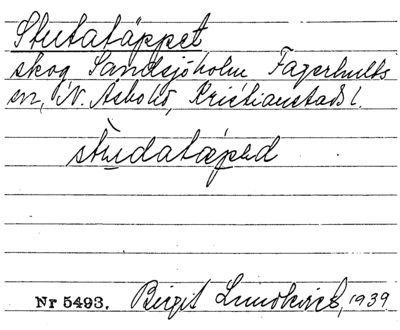 Stutatäppet
skog Sandsjöholm Fagerhults
sn, N. Åsbo hd, Kristianstads l.
studatæped
Nr 5493. Birgit Lundkvist, 1939